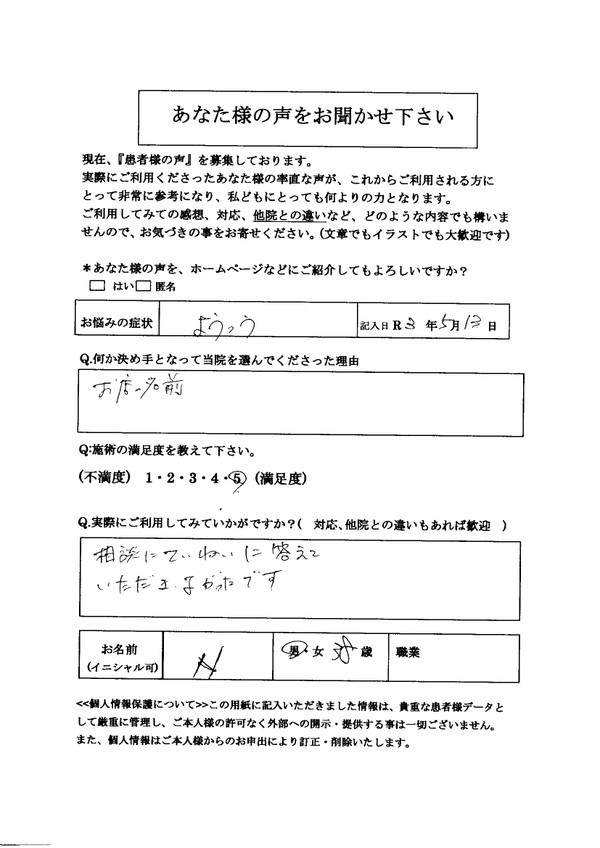 あなた様の声をお聞かせ下さい
現在、『患者様の声』を募集しております。
実際にご利用くださったあなた様の率直な声が、これからご利用される方に
とって非常に参考になり、私どもにとっても何よりの力となります。
ご利用してみての感想、対応、他院との違いなど、どのような内容でも構いま
せんので、お気づきの事をお寄せください。(文章でもイラストでも大歓迎です)
＊あなた様の声を、ホームページなどにご紹介してもよろしいですか？
□ はい□ 匿名
お悩みの症状 ようつう 記入日 R 3 年 5月 13 日
Q.何か決め手となって当院を選んでくださった理由
お店の名前
Q:施術の満足度を教えて下さい。
(不満度) 1・2・3・4・5 (満足度)
Q.実際にご利用してみていかがですか？( 対応、他院との違いもあれば歓迎 )
相談にていねいに答えて
いただき よかったです
お名前
(イニシャル可) N 男・女 38 歳 職業
<<個人情報保護について>>この用紙に記入いただきました情報は、貴重な患者様データと
して厳重に管理し、ご本人様の許可なく外部への開示・提供する事は一切ございません。
また、個人情報はご本人様からのお申出により訂正・削除いたします。